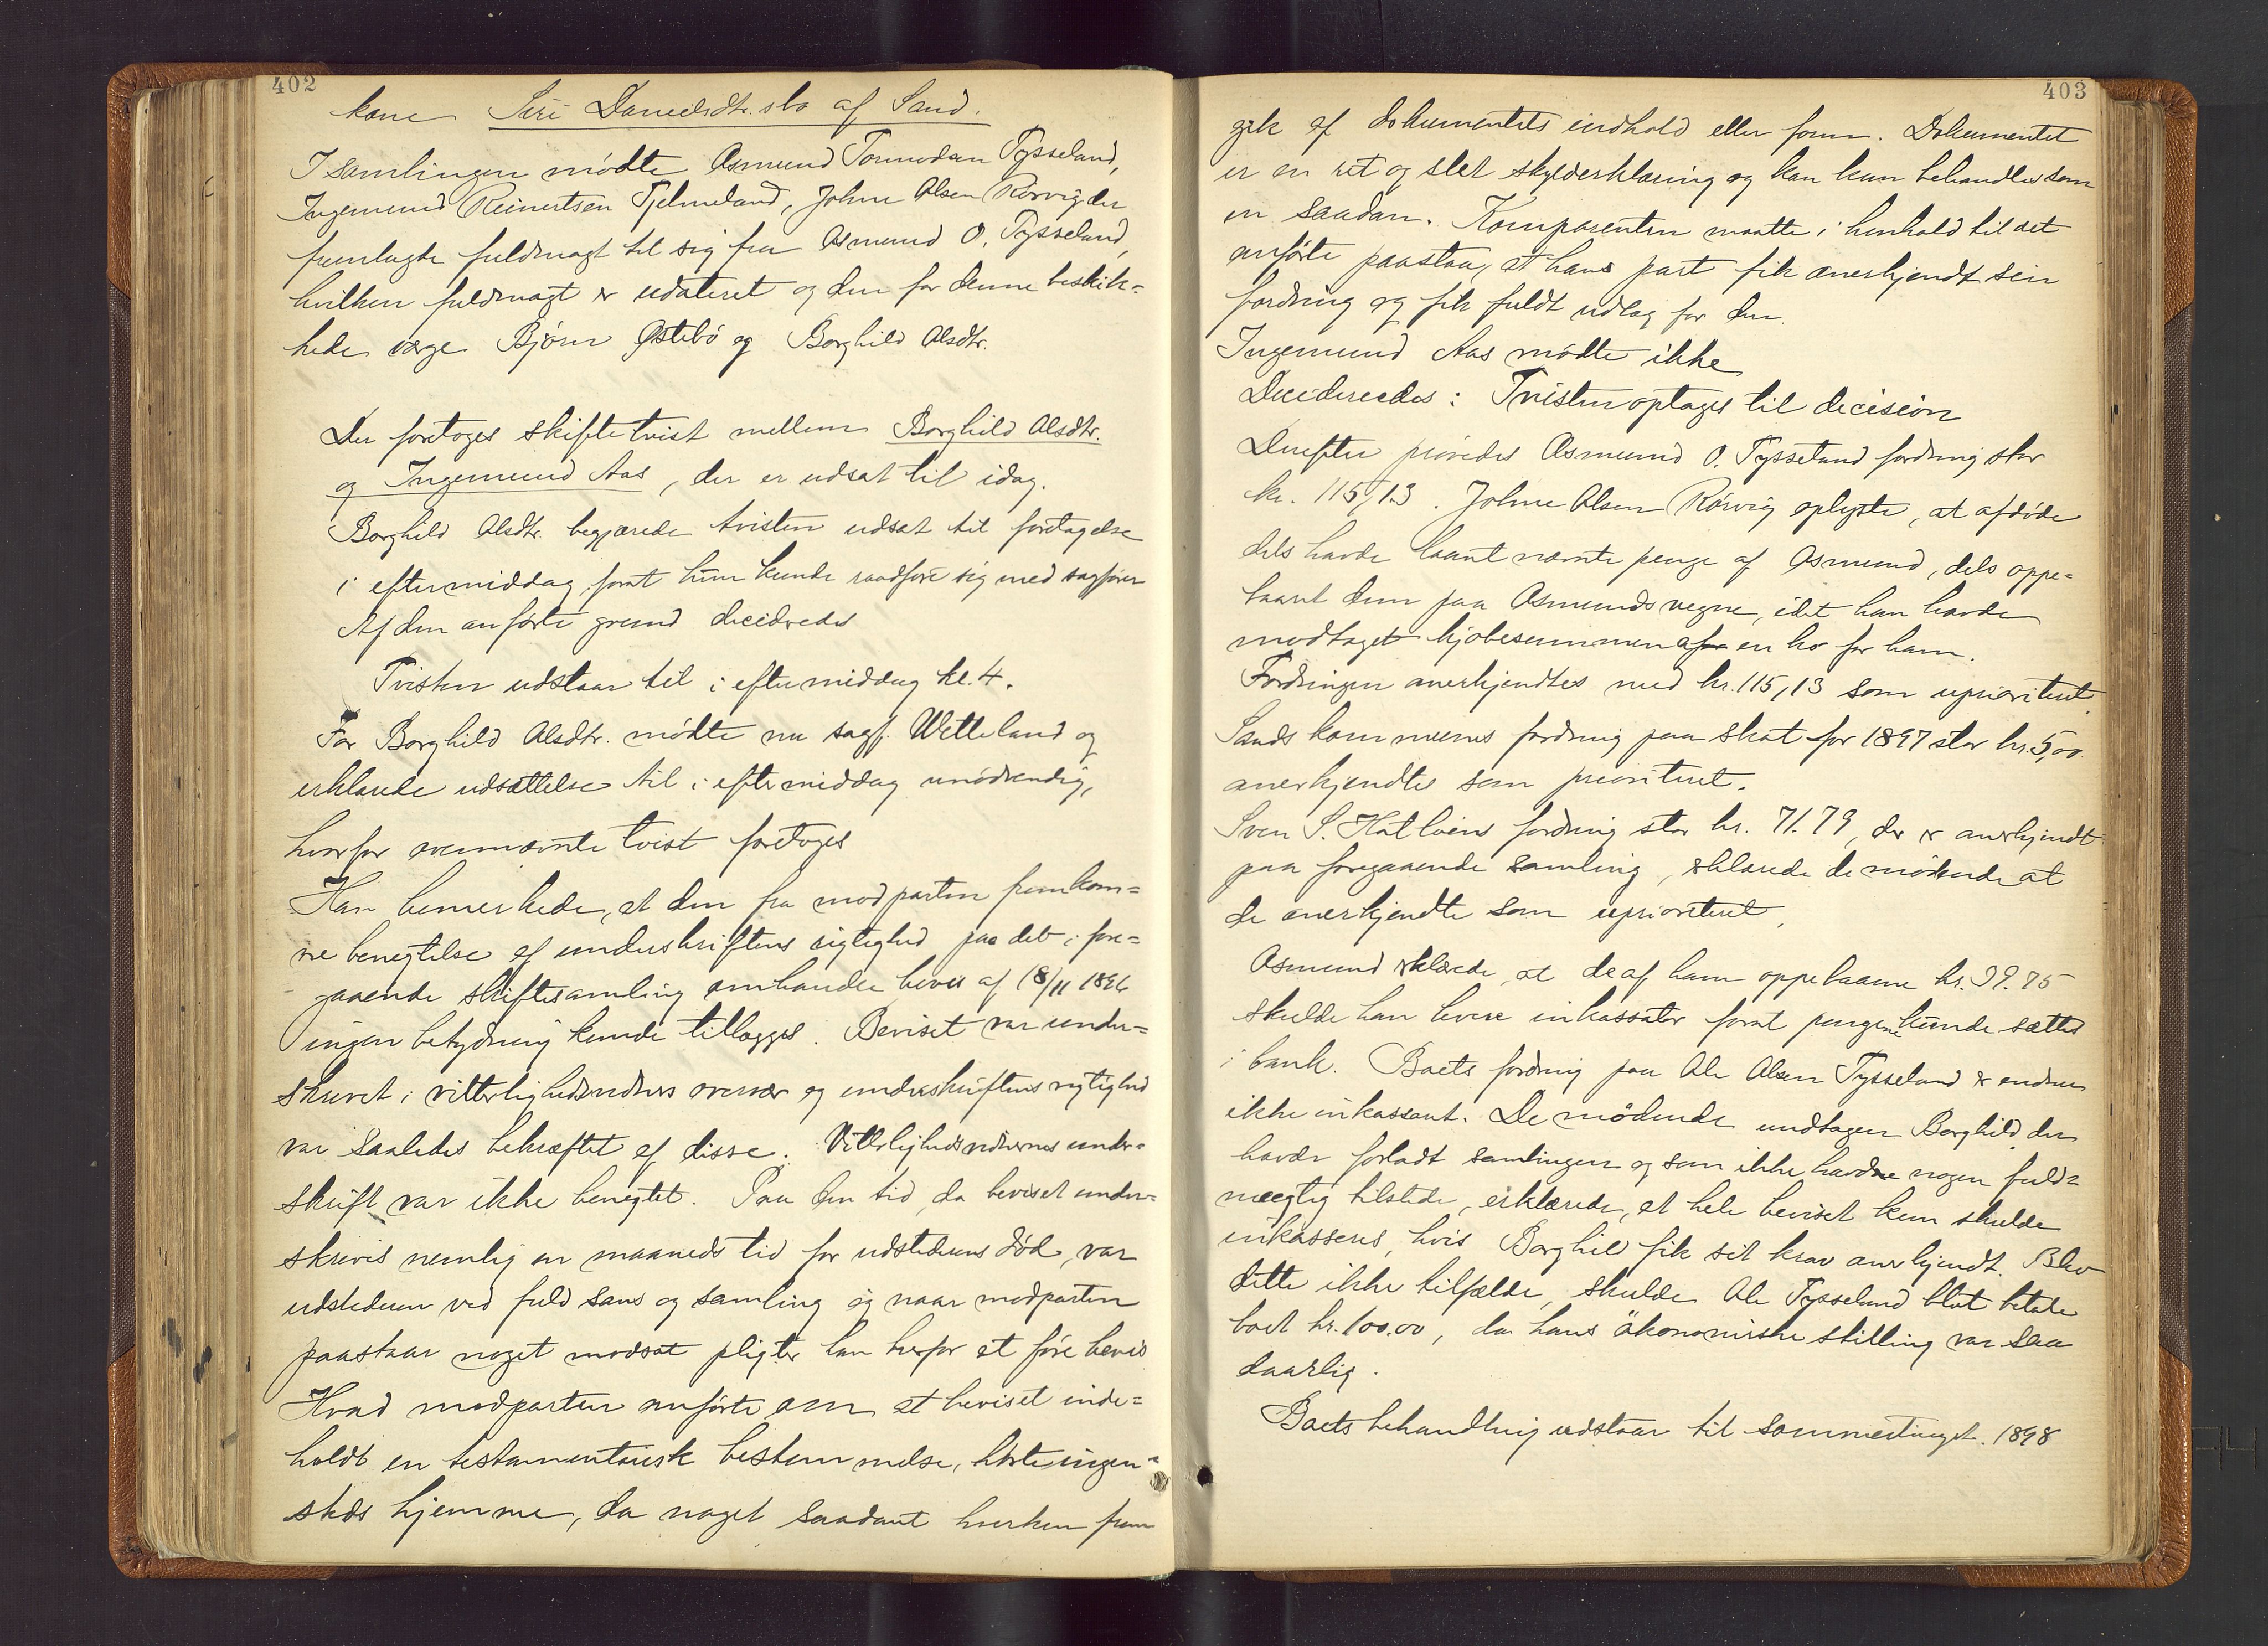 402
kone Siri Danielsdtr. sbo af Sand.
I samlingen mødte Asmund Tormodsen Tysseland,
Ingemund Reinertsen Tjelmeland, Johne Alsen Rørvig der
fremlagte fuldmagt til sig fra Asmund O. Tysseland,
hvilken fuldmagt er udateret og den for denne beskik=
kede værge Bjørn Østebø og Borghild Alsdtr.
Der foretoges skiftetvist mellem Borghild Alsdtr.
og Ingemund Aas, der er udsat til idag.
Borghild Alsdtr. begjærede tvisten udsat til foretagelse
i eftermiddag forat hun kunde raadføre sig med sagfører
Af den anførte grund decideredes
Tvisten udstaar til i eftermiddag kl. 4.
For Borghild Alsdtr. mødte nu sagf. Wetteland og
erklærede udsættelse til i eftermiddag unødvendig,
hvorfor ovennævnte tvist foretoges
Han bemerkede, at den fra modparten fremkom=
ne benegtelse af underskriftens rigtighed paa det i fore=
gaaende skiftesamling omhandlede bevis af 18/11 1896
ingen betydning kunde tillægges. Beviset var under=
skrevet i vitterlighedsvidners overvær og underskriftens rigtighed
var saaledes bekræftet af disse. Vitterlighedsvidnernes under=
skrift var ikke benegtet. Paa den tid, da beviset under=
skreves nemlig en maaneds tid før udstederens død, var
udstederen ved fuld sans og samling og naar modparten
paastaar noget modsat pligter han herfor at føre bevis
Hvad modparten anførte om at beviset inde=
holdt en testamentarisk bestemmelse, hørte ingen=
steds hjemme, da noget saadant hverken frem
403
gik af dokumentets indhold eller form. Dokumentet
er en ret og slet skylderklæring og kan kun behandles som
en saadan. Komparenten maatte i henhold til det
anførte paastaa, at hans part fik anerkjendt sin
fordring og fik fuldt udlæg for den.
Ingemund Aas mødte ikke
Decideredes: Tvisten optages til decision
Derefter prøvedes Asmund O. Tysseland fordring stor
kr. 115,13. Johne Alsen Rørvig oplyste, at afdøde
dels havde laant nævnte penge af Asmund, dels oppe=
baaret dem paa Asmunds vegne, idet han havde
modtaget kjøbesummen af en ko for ham.
Fordringen anerkjendtes med kr. 115,13 som uprioriteret.
Sands kommunes fordring paa skat for 1897 stor kr. 5,00
anerkjendtes som prioriteret.
Sven S. Hatløens fordring stor kr. 71.79, der er anerkjendt
paa foregaaende samling, erklærede de mødende at
de anerkjendte som uprioriteret.
Asmund erklærede, at de af ham oppebaarne kr. 39.75
skulde han levere inkassator forat pengene kunde sættes
i bank. Boets fordring paa Ole Olsen Tysseland er endnu
ikke inkasseret. De mødende undtagen Borghild der
havde forladt samlingen og som ikke havde nogen fuld=
mægtig tilstede, erklærede, at hele beviset kun skulde
inkasseres, hvis Borghild fik sit krav anerkjendt. Blev
dette ikke tilfælde, skulde Ole Tysseland blot betale
boet kr. 100.00, da hans økonomiske stilling var saa
daarlig.
Boets behandling udstaar til sommertinget. 1898